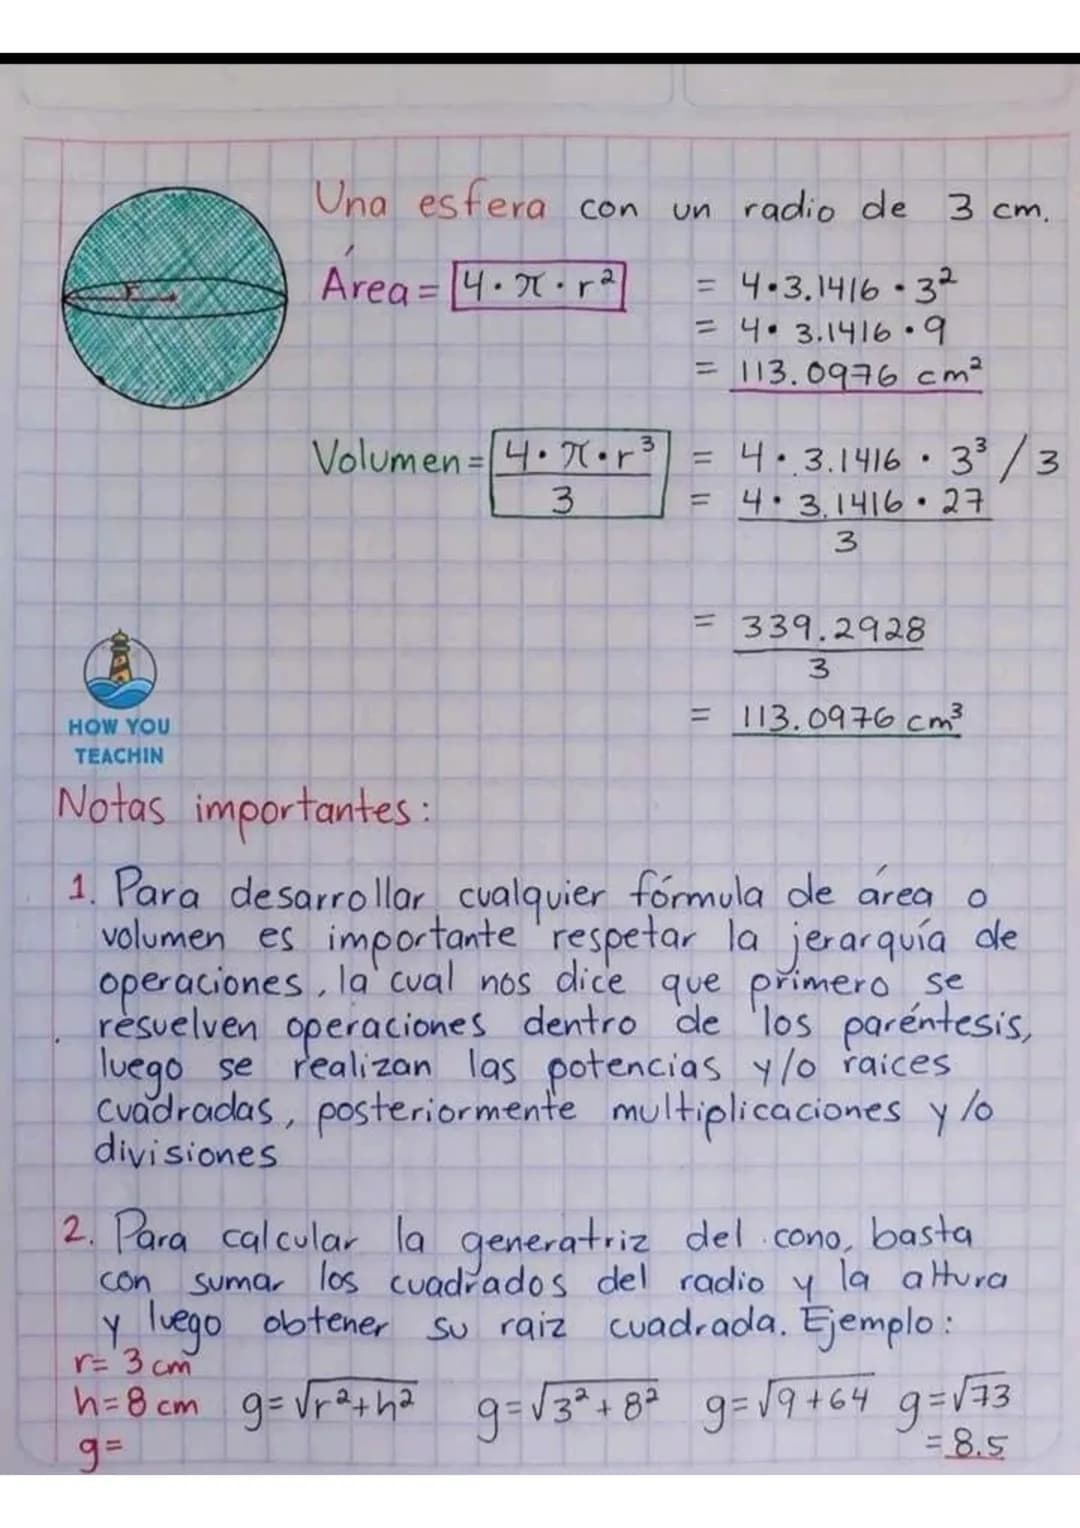 Una esfera con un radio de 3 cm.
Área = 4·π·r² = 4·3.1416·3²
= 4·3.1416·9
= 113.0976 cm²
r
Volumen = 4·π·r³ = 4·3.1416·3³/3
3
= 4·3.1416·27
3
= 339.2928
3
= 113.0976 cm³
HOW YOU
TEACHIN
Notas importantes:
1. Para desarrollar cualquier fórmula de área o
volumen es importante respetar la jerarquía de
operaciones, la cual nos dice que primero se
resuelven operaciones dentro de los paréntesis,
luego se realizan las potencias y/o raices
cuadradas, posteriormente multiplicaciones y/o
divisiones
2. Para calcular la generatriz del cono, basta
con sumar los cuadrados del radio y la altura
y luego obtener su raiz cuadrada. Ejemplo:
r= 3 cm
h=8 cm g=√r²+h² g=√3²+8² g=√9+64 g=√73
g= = 8.5